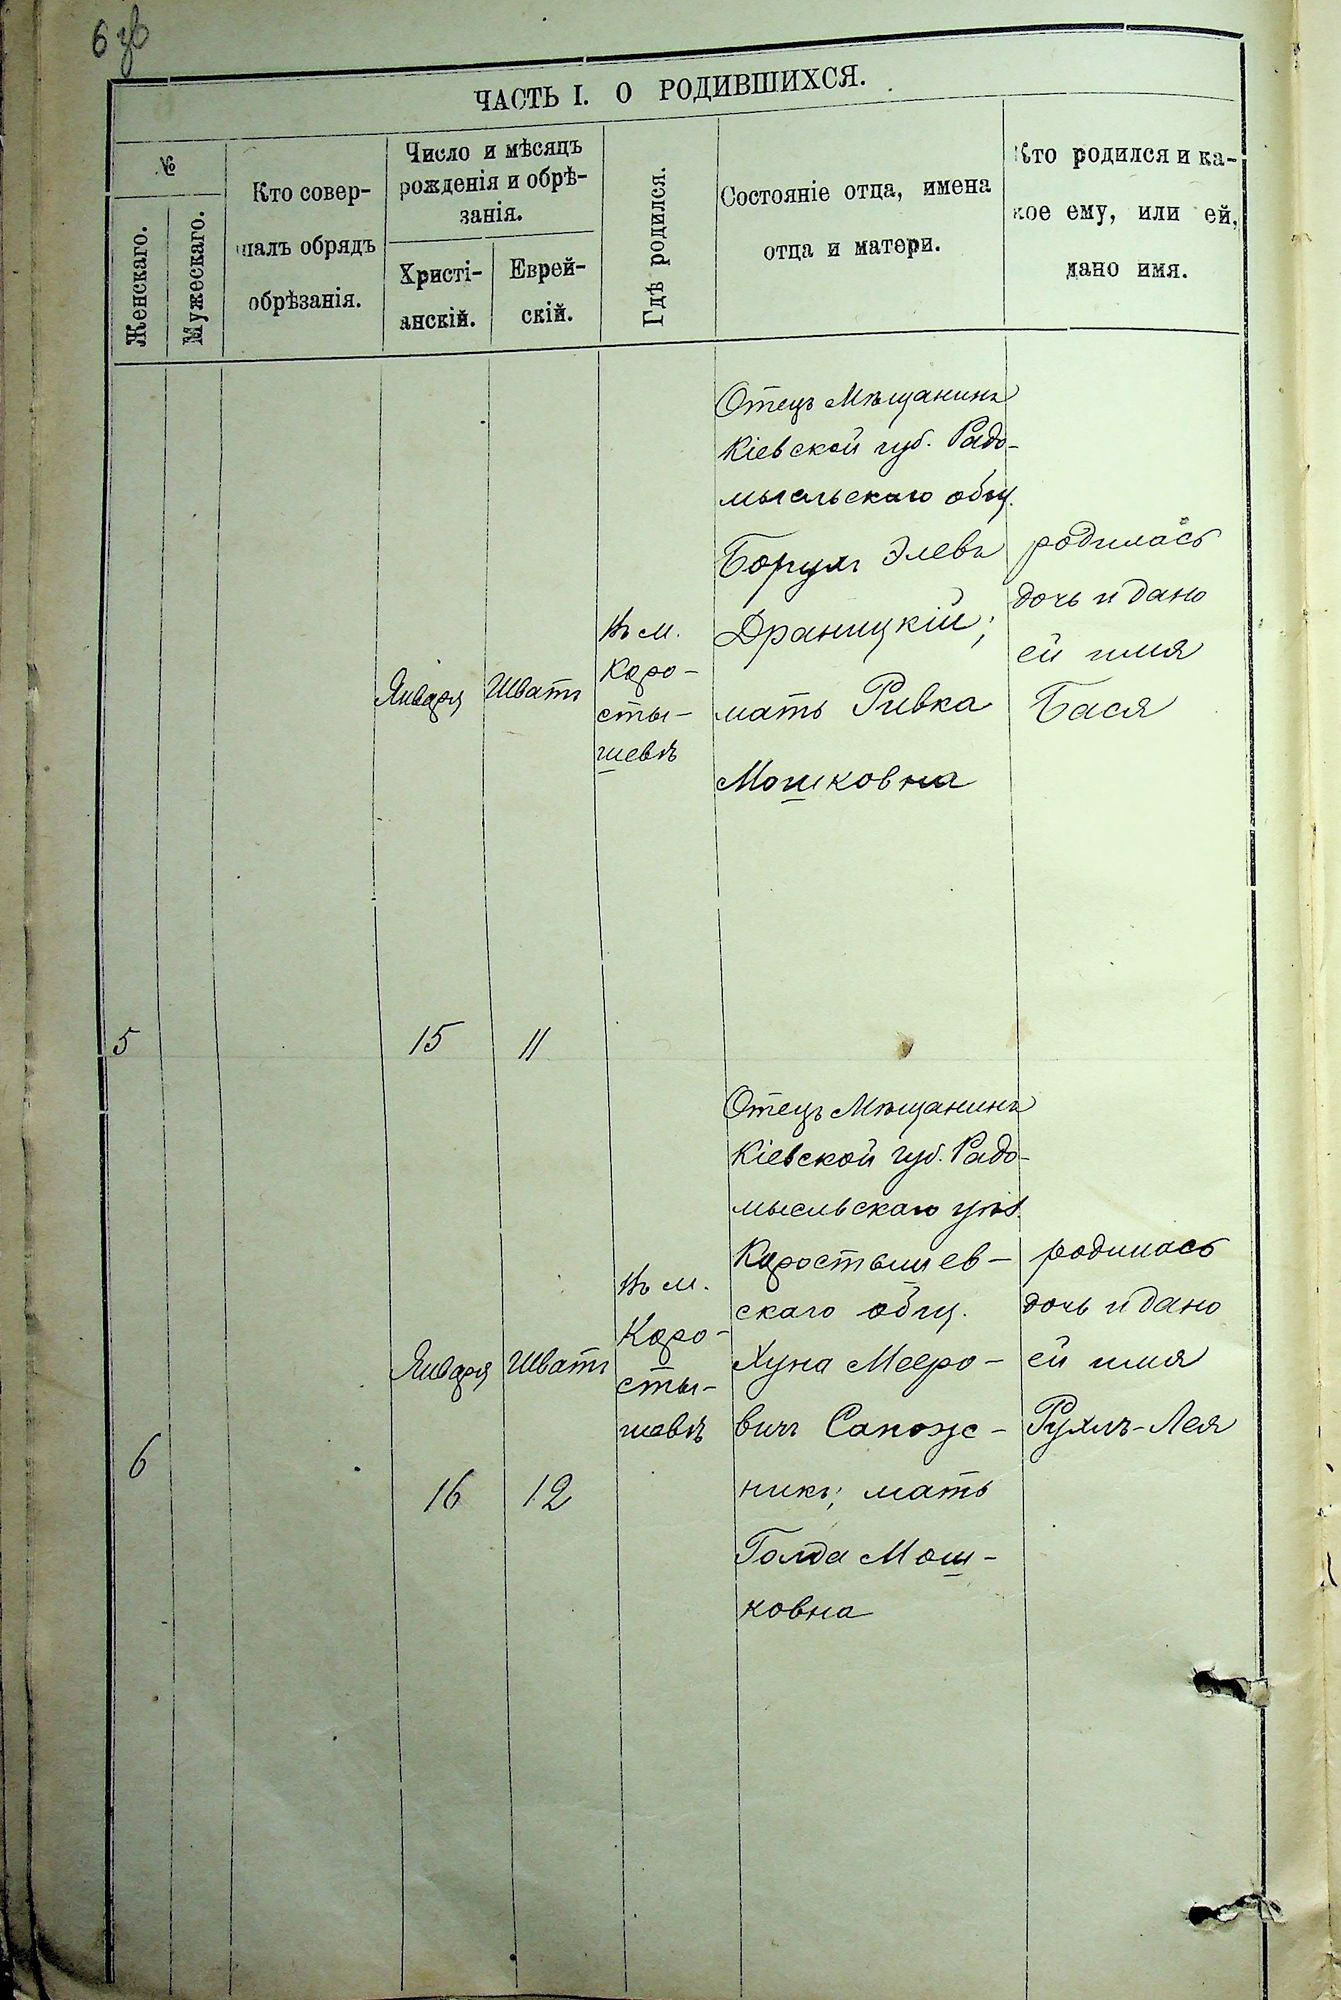 6 зв
ЧАСТЬ I. О РОДИВШИХСЯ.
№
Женскаго.
Мужескаго.
Кто совер-
шалъ обрядъ
обрѣзанія.
Число и мѣсяцъ
рожденія и обрѣ-
занія.
Христі-
анскій.
Еврей-
скій.
Гдѣ родился.
Состояніе отца, имена
отца и матери.
Кто родился и ка-
кое ему, или ей,
дано имя.
5
Января
15
Шватъ
11
въ м.
Коро-
сты-
шевѣ
Отецъ Мѣщанинъ
Кіевской губ. Радо-
мысльскаго общ.
Борухъ Элевъ
Драницкій;
мать Ривка
Мошковна
родилась
дочь и дано
ей имя
Бася
6
Января
16
Шватъ
12
въ м.
Коро-
сты-
шевѣ
Отецъ Мѣщанинъ
Кіевской губ. Радо-
мысльскаго уѣз.
Коростышев-
скаго общ.
Хуна Мееро-
вичъ Сапож-
никъ; мать
Голда Мош-
ковна
родилась
дочь и дано
ей имя
Рухль-Лея